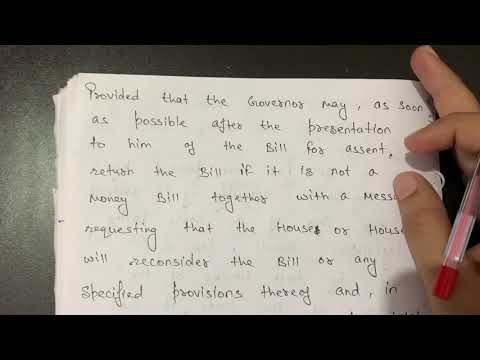 Provided that the Governor may, as soon
as possible after the presentation
to him of the Bill for assent,
return the Bill if it is not a
money Bill together with a Messa
requesting that the House or House
will reconsider the Bill or any
Specified provisions thereof and, in